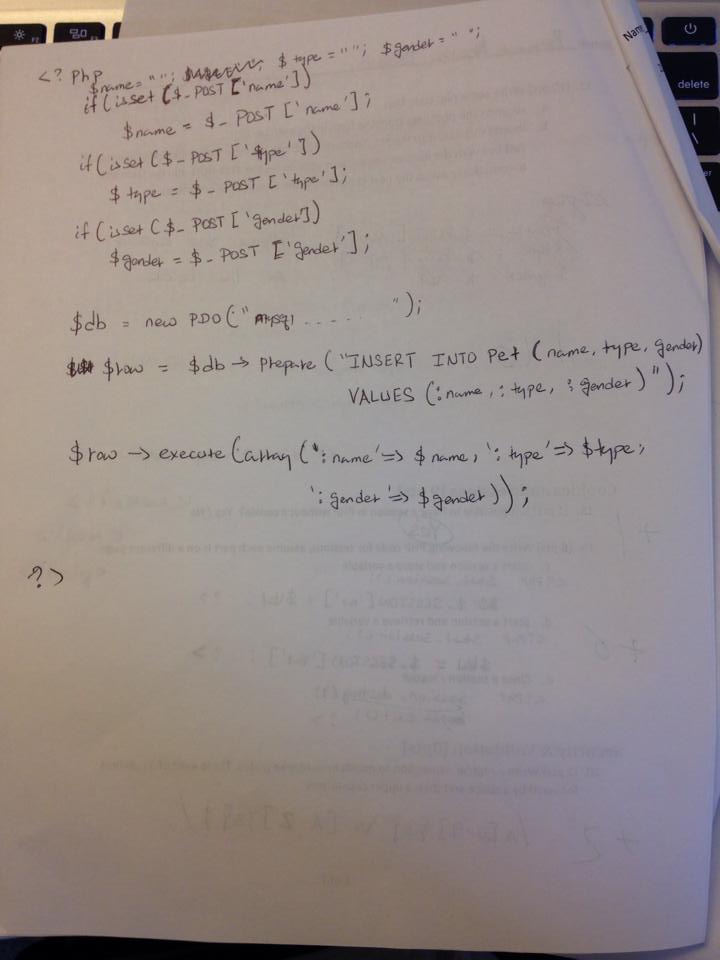 <? Php
$name = " "; $type = " "; $gender = " ";
if (isset ($_POST ['name'])
$name = $_POST ['name'];
if (isset ($_POST ['type'])
$type = $_POST ['type'];
if (isset ($_POST ['gender])
$gender = $_POST ['gender'];
$db = new PDO ("mysql ..... ");
$row = $db → Prepare ("INSERT INTO Pet (name, type, gender)
VALUES (:name, :type, :gender)");
$row → execute (array (':name' => $name, ':type' => $type,
':gender' => $gender));
?>
delete